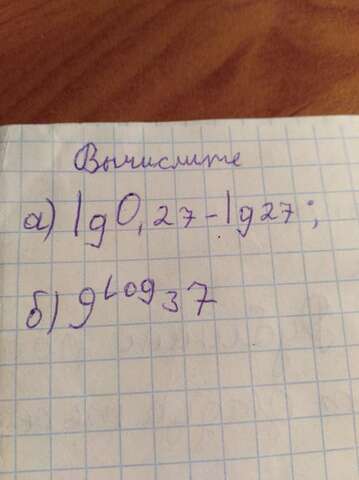 Вычислите
а) lg 0,27 - lg 27;
б) 9^log₃7